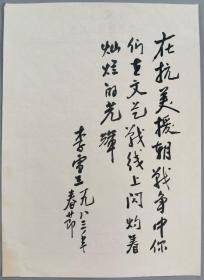 在抗美援朝战争中你
们在文艺战线上闪灼着
灿烂的光辉
李雪三一九八三年
春节